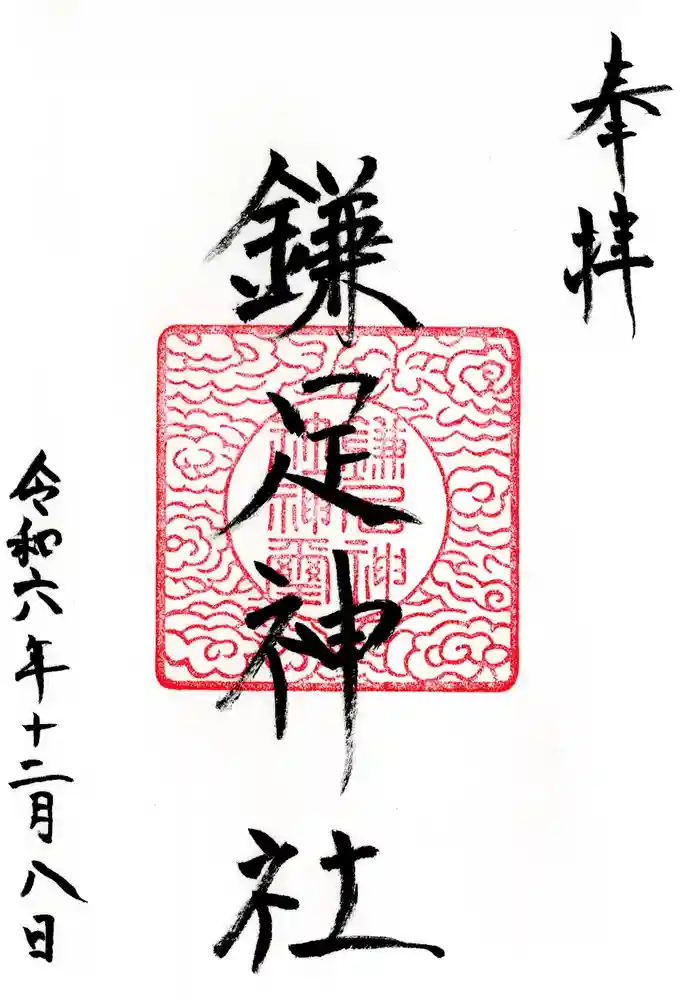 奉拝
鎌足神社
鎌足神
社神璽
令和六年十二月八日